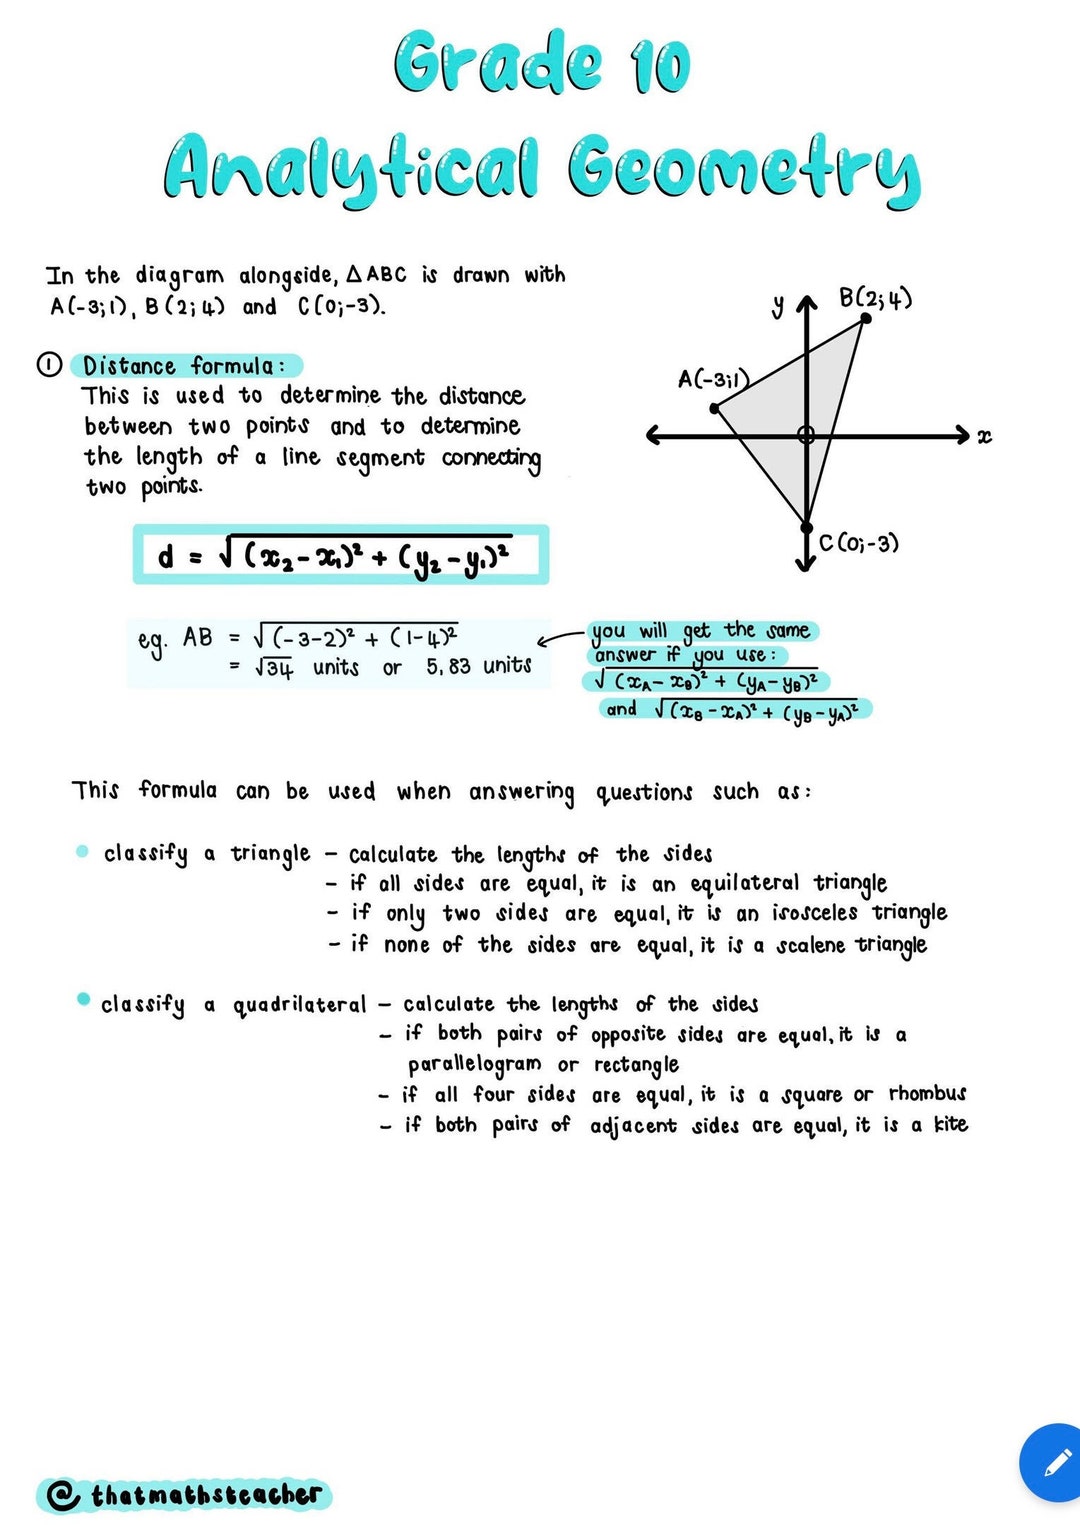 Grade 10
Analytical Geometry
In the diagram alongside, △ABC is drawn with
A(-3;1), B(2;4) and C(0;-3).
① Distance formula:
This is used to determine the distance
between two points and to determine
the length of a line segment connecting
two points.
d = √(x₂-x₁)² + (y₂-y₁)²
eg. AB = √(-3-2)² + (1-4)²
= √34 units or 5,83 units
y
B(2;4)
A(-3;1)
x
C(0;-3)
you will get the same
answer if you use:
√(x_A - x_B)² + (y_A - y_B)²
and √(x_B - x_A)² + (y_B - y_A)²
This formula can be used when answering questions such as:
• classify a triangle – calculate the lengths of the sides
– if all sides are equal, it is an equilateral triangle
– if only two sides are equal, it is an isosceles triangle
– if none of the sides are equal, it is a scalene triangle
• classify a quadrilateral – calculate the lengths of the sides
– if both pairs of opposite sides are equal, it is a
parallelogram or rectangle
– if all four sides are equal, it is a square or rhombus
– if both pairs of adjacent sides are equal, it is a kite
@thatmathsteacher